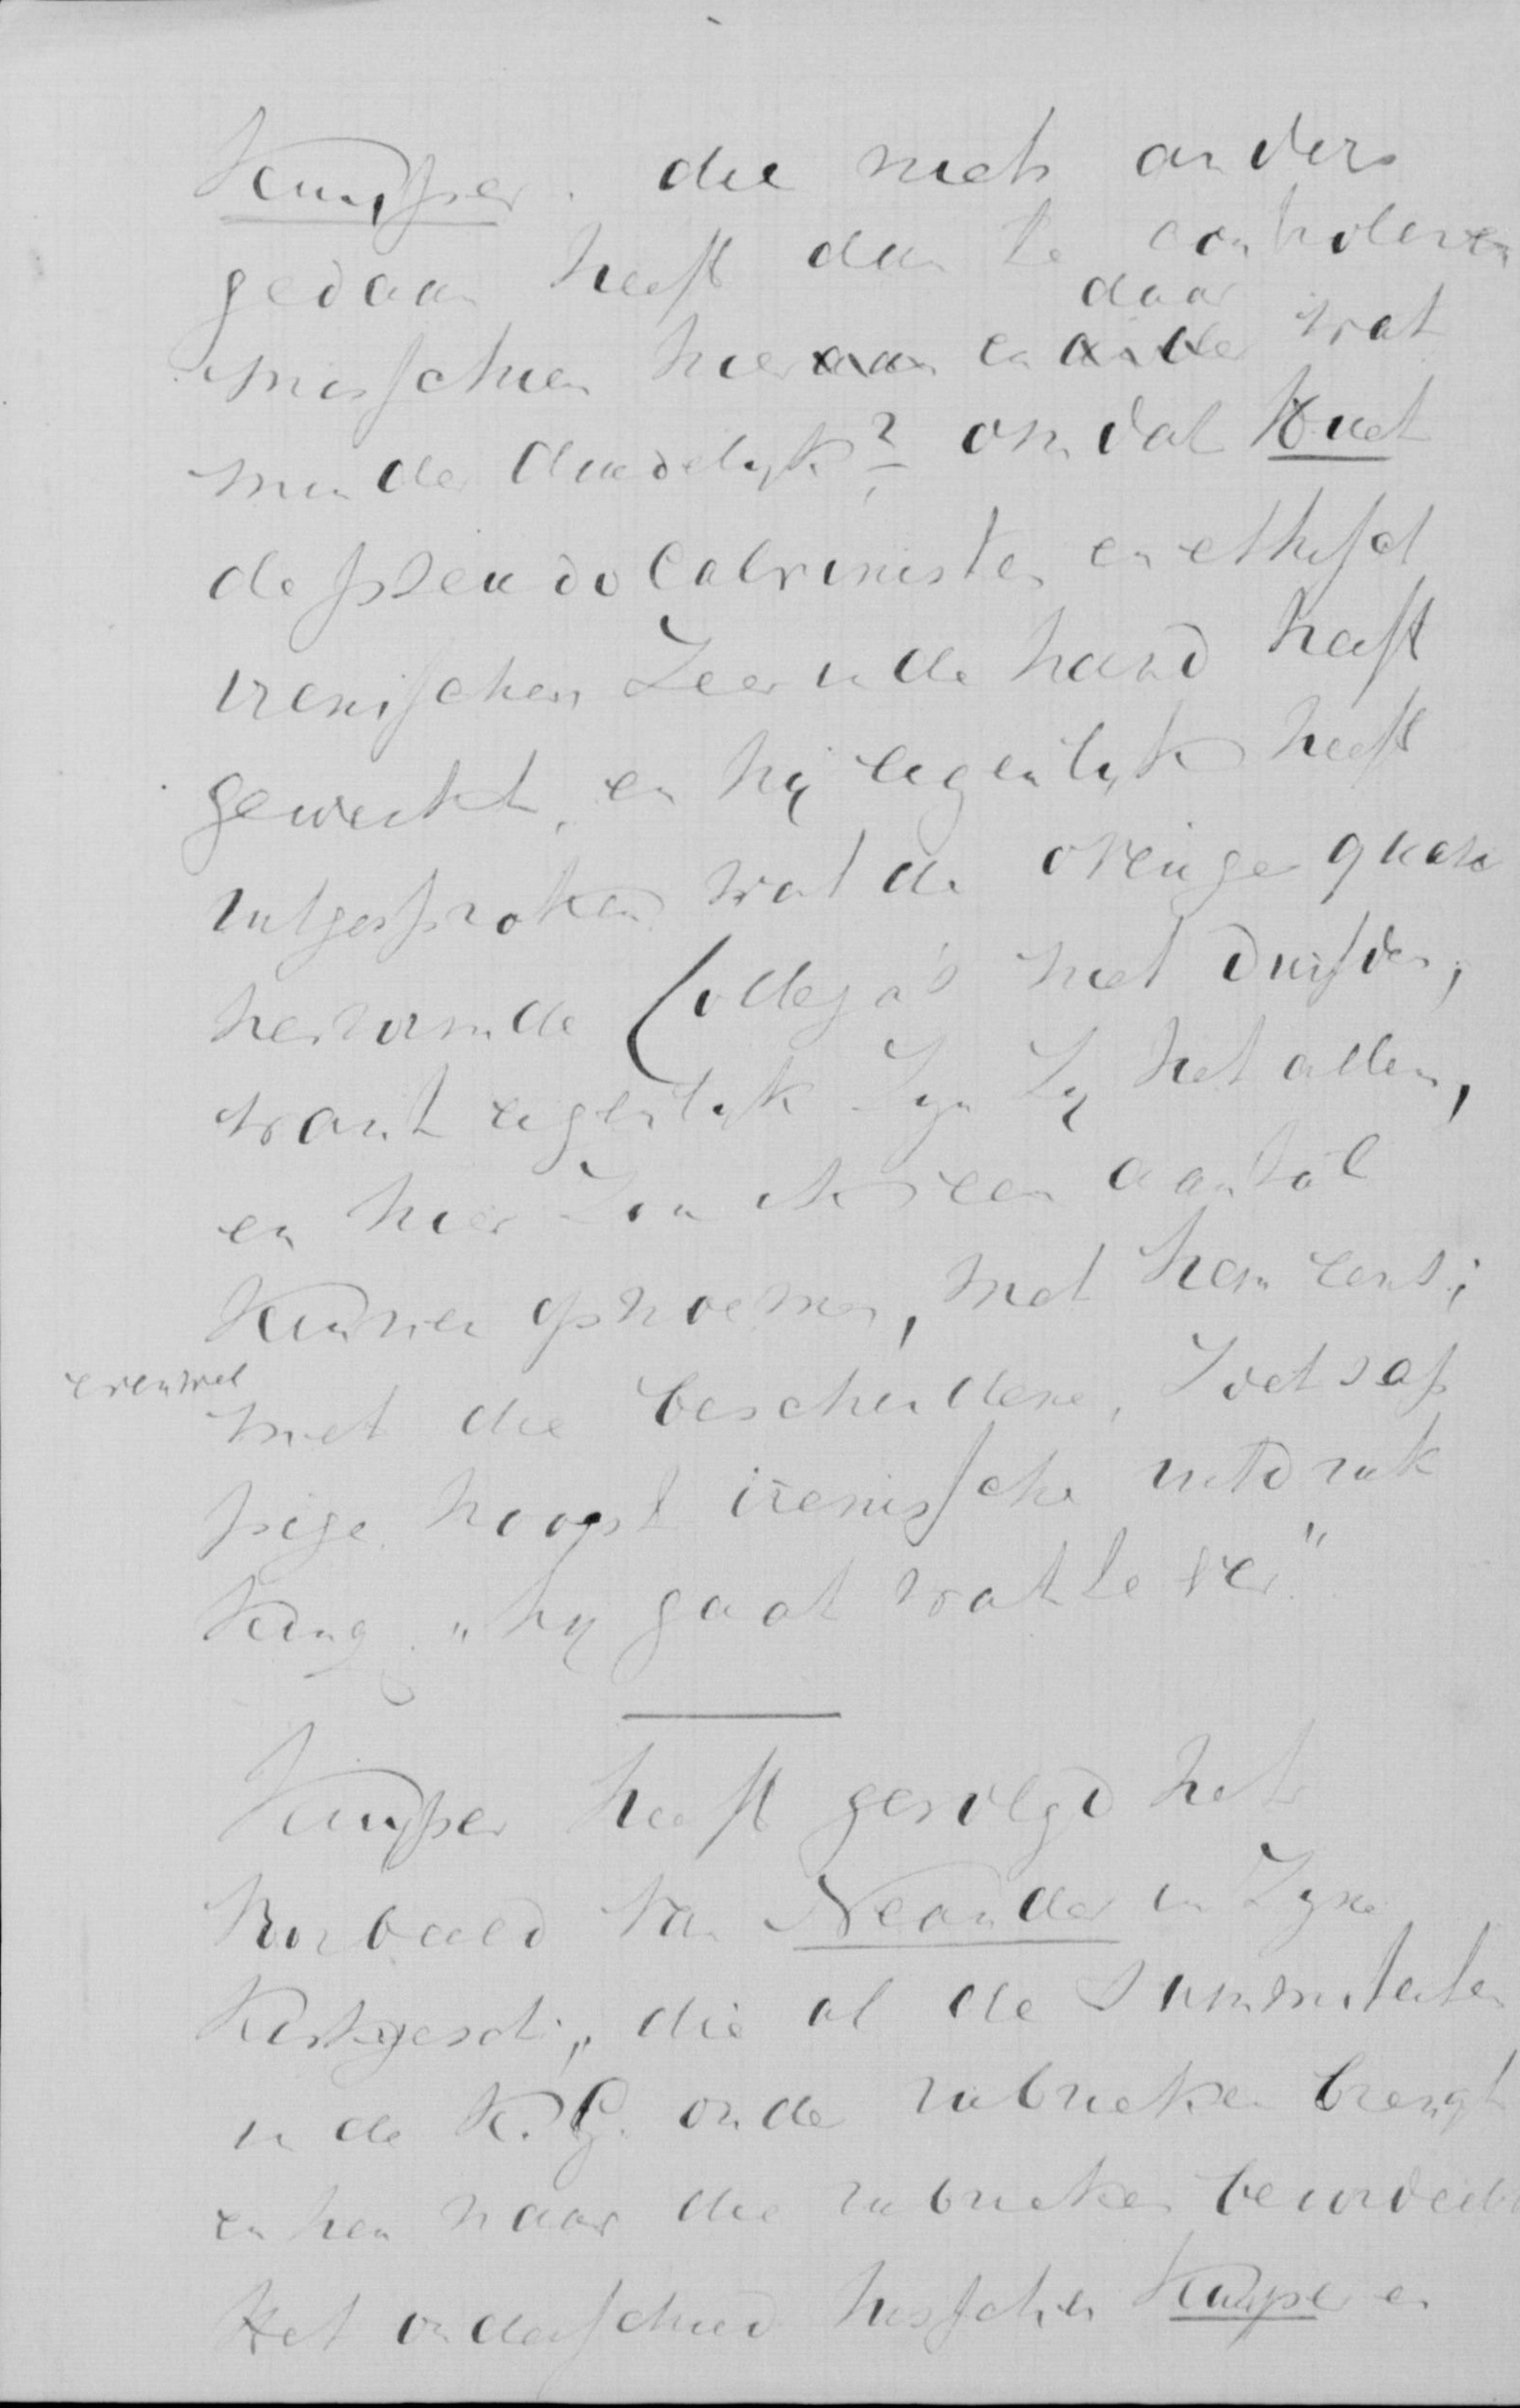 Kuijper. die niets anders
gedaan heeft dan te controleren
misschien hier en daar wat
minder duidelyk? omdat Huet
de pseudo Calvinisten en ethisch
irenischen zeer in de hand heeft
gewerkt, en hij eigenlyk heeft
uitgesproken wat de overige quasi
hervormde Collega's niet durfden,
want eigenlyk zyn zy het allen,
en hier zou ik een aantal
kunnen opnoemen, met hem eens;
evenwel
met die bescheidene, zoetsap
pige, hoogst irenische uitdruk
king. „hy gaat wat te ver"
Kuijper heeft gevolgd het
voorbeeld van Neander in zyne
Kerkgesch., die al de summiteiten
in de K.G. onder rubrieken brengt
en hen naar die rubrieken beoordeelt
Het onderscheid tusschen Kuyper en